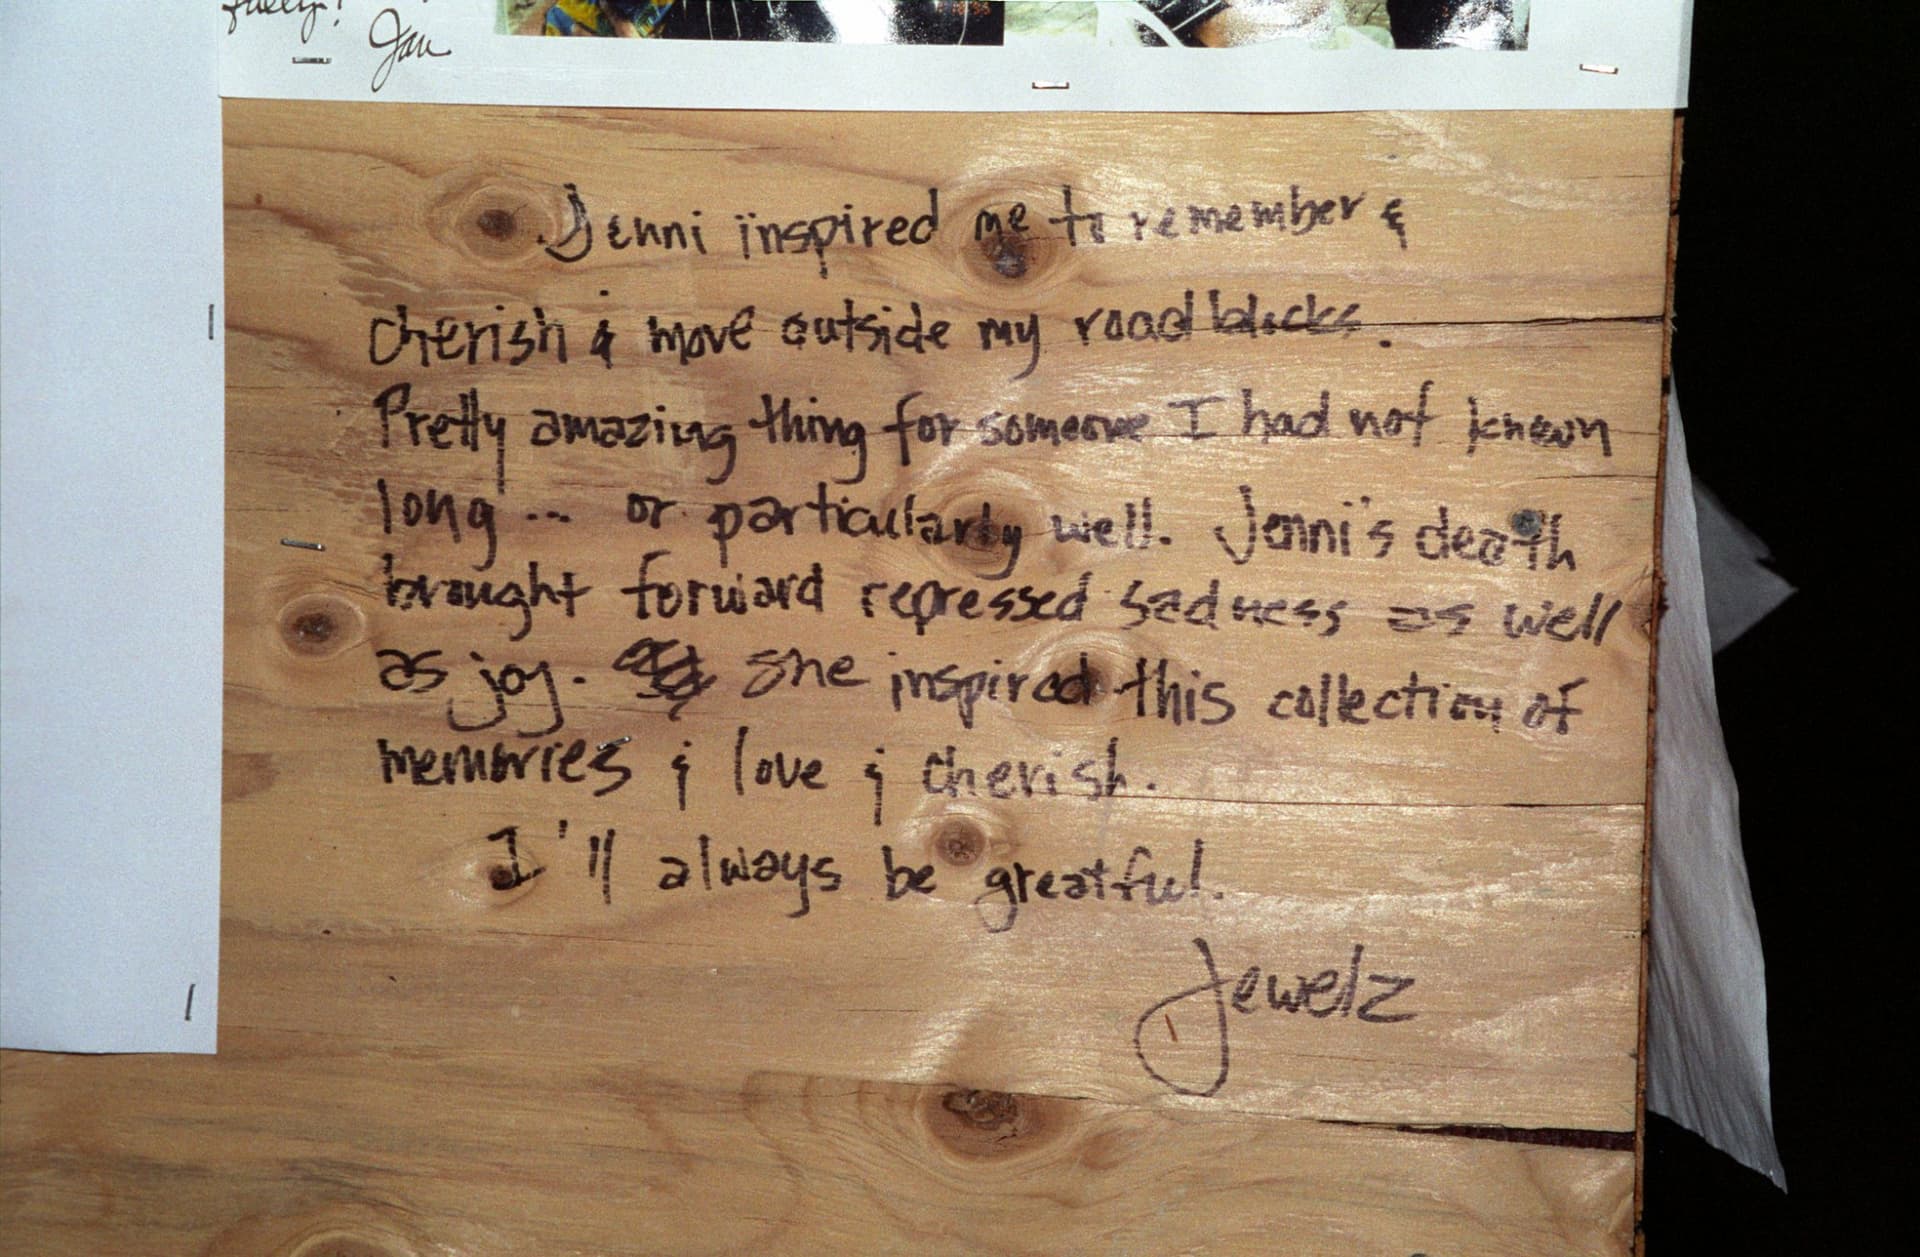 Jan
Jenni inspired me to remember &
cherish & move outside my road blocks.
Pretty amazing thing for someone I had not known
long... or particularly well. Jenni's death
brought forward repressed sadness as well
as joy. She inspired this collection of
memories & love & cherish.
I'll always be greatful.
Jewelz